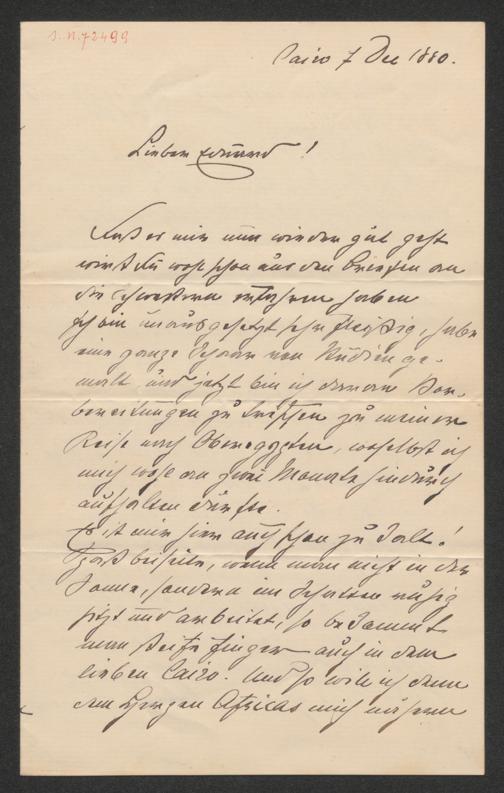 J.N. 72499
Cairo 7 Dec 1880.
Lieber Eduard!
Daß es mir nun wieder gut geht
wirst Du wohl schon aus den Briefen an
die Schwestern erfahren haben
Ich bin unausgesetzt sehr fleißig, habe
eine ganze Schaar von Studien ge-
malt und jetzt bin ich daran Vor-
bereitungen zu treffen zu meiner
Reise nach Oberegypten, woselbst ich
mich wohl an zwei Monate hindurch
aufhalten dürfte.
Es ist mir hier auch schon zu kalt!
Spaß beiseite, wenn man nicht in der
Sonne, sondern im Schatten ruhig
sitzt und arbeitet, so bekommt
man steife Finger auch in dem
lieben Cairo. Und so will ich denn
dem Herzen Africas mich nähern